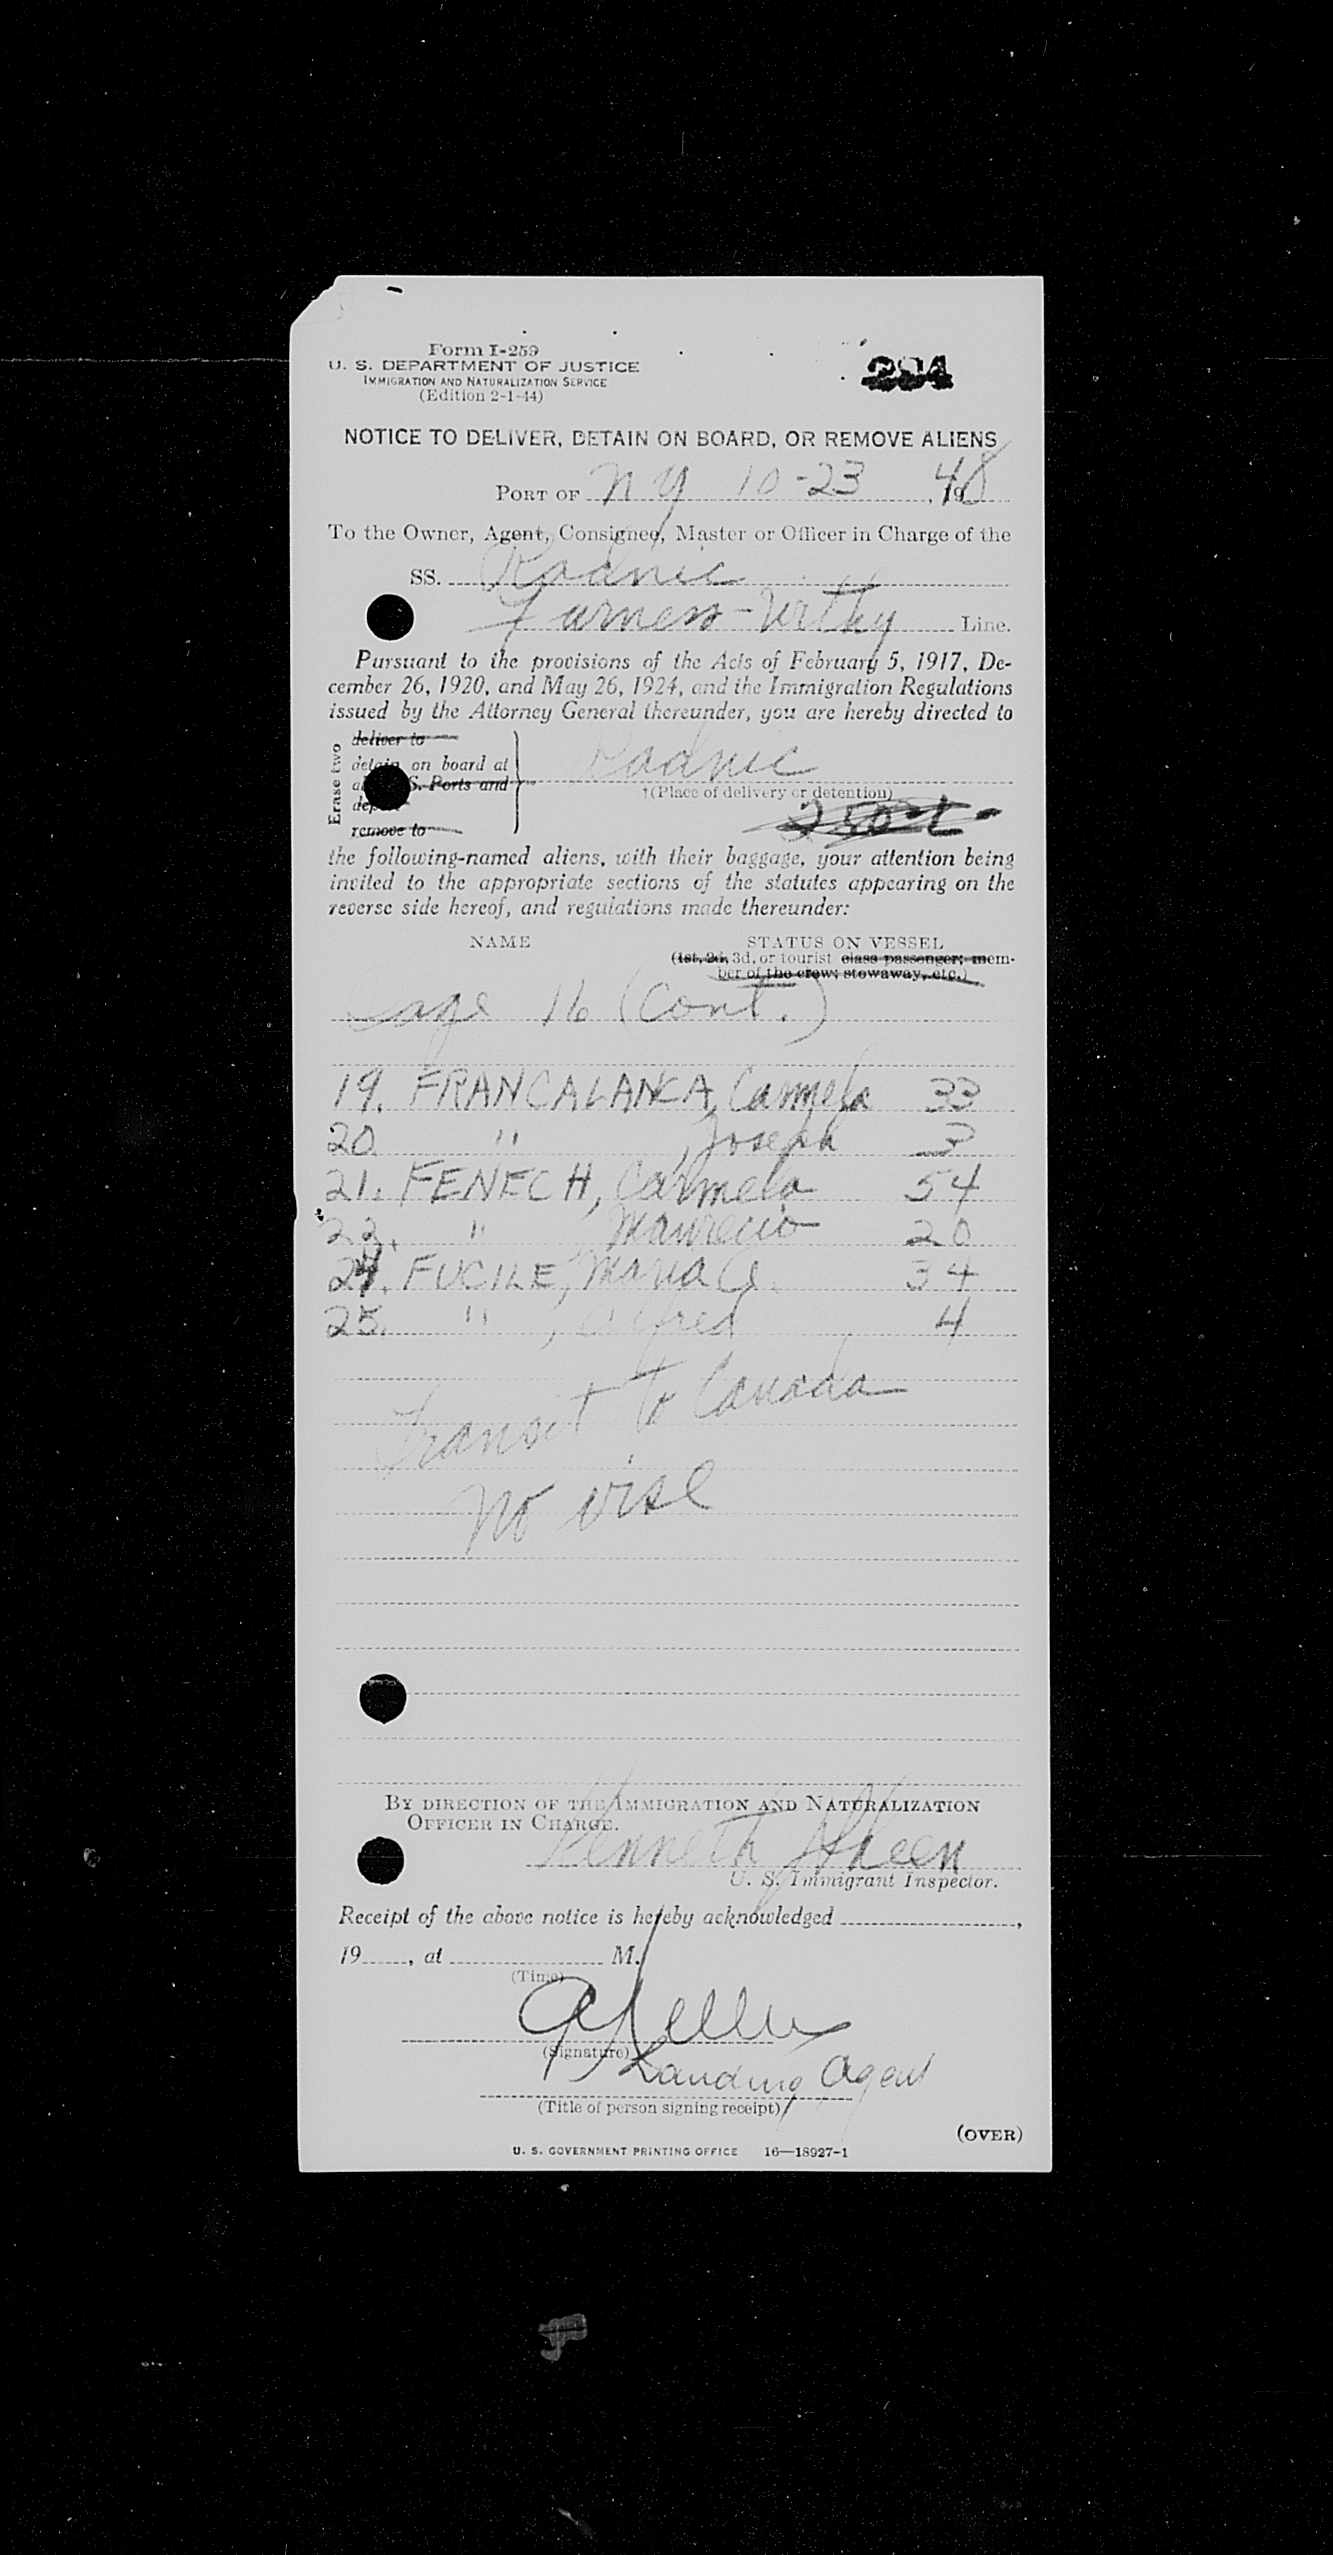 Form I-259
U. S. DEPARTMENT OF JUSTICE
IMMIGRATION AND NATURALIZATION SERVICE
(Edition 2-1-44)
294
NOTICE TO DELIVER, DETAIN ON BOARD, OR REMOVE ALIENS
PORT OF N Y 10-23, 1948
To the Owner, Agent, Consignee, Master or Officer in Charge of the
SS. Radnic
Furness-Withy Line.
Pursuant to the provisions of the Acts of February 5, 1917, De-
cember 26, 1920, and May 26, 1924, and the Immigration Regulations
issued by the Attorney General thereunder, you are hereby directed to
Erase two
deliver to
detain on board at
S. Ports and
remove to
Radnic
†(Place of delivery or detention)
the following-named aliens, with their baggage, your attention being
invited to the appropriate sections of the statutes appearing on the
reverse side hereof, and regulations made thereunder:
NAME STATUS ON VESSEL
(1st, 2d, 3d, or tourist class passenger; mem-
ber of the crew; stowaway, etc.)
Page 16 (Cont.)
19. FRANCALANCA, Carmela 33
20. " , Joseph 3
21. FENECH, Carmela 54
22. " 20
24. FUCILE, Maria G. 34
25. " , Alfred 4
Transit to Canada
No vise
BY DIRECTION OF THE IMMIGRATION AND NATURALIZATION
OFFICER IN CHARGE.
Kenneth
U. S. Immigrant Inspector.
Receipt of the above notice is hereby acknowledged ,
19 , at M.
(Time)
(Signature)
Landing Agent
(Title of person signing receipt)
(OVER)
U. S. GOVERNMENT PRINTING OFFICE 16—18927-1